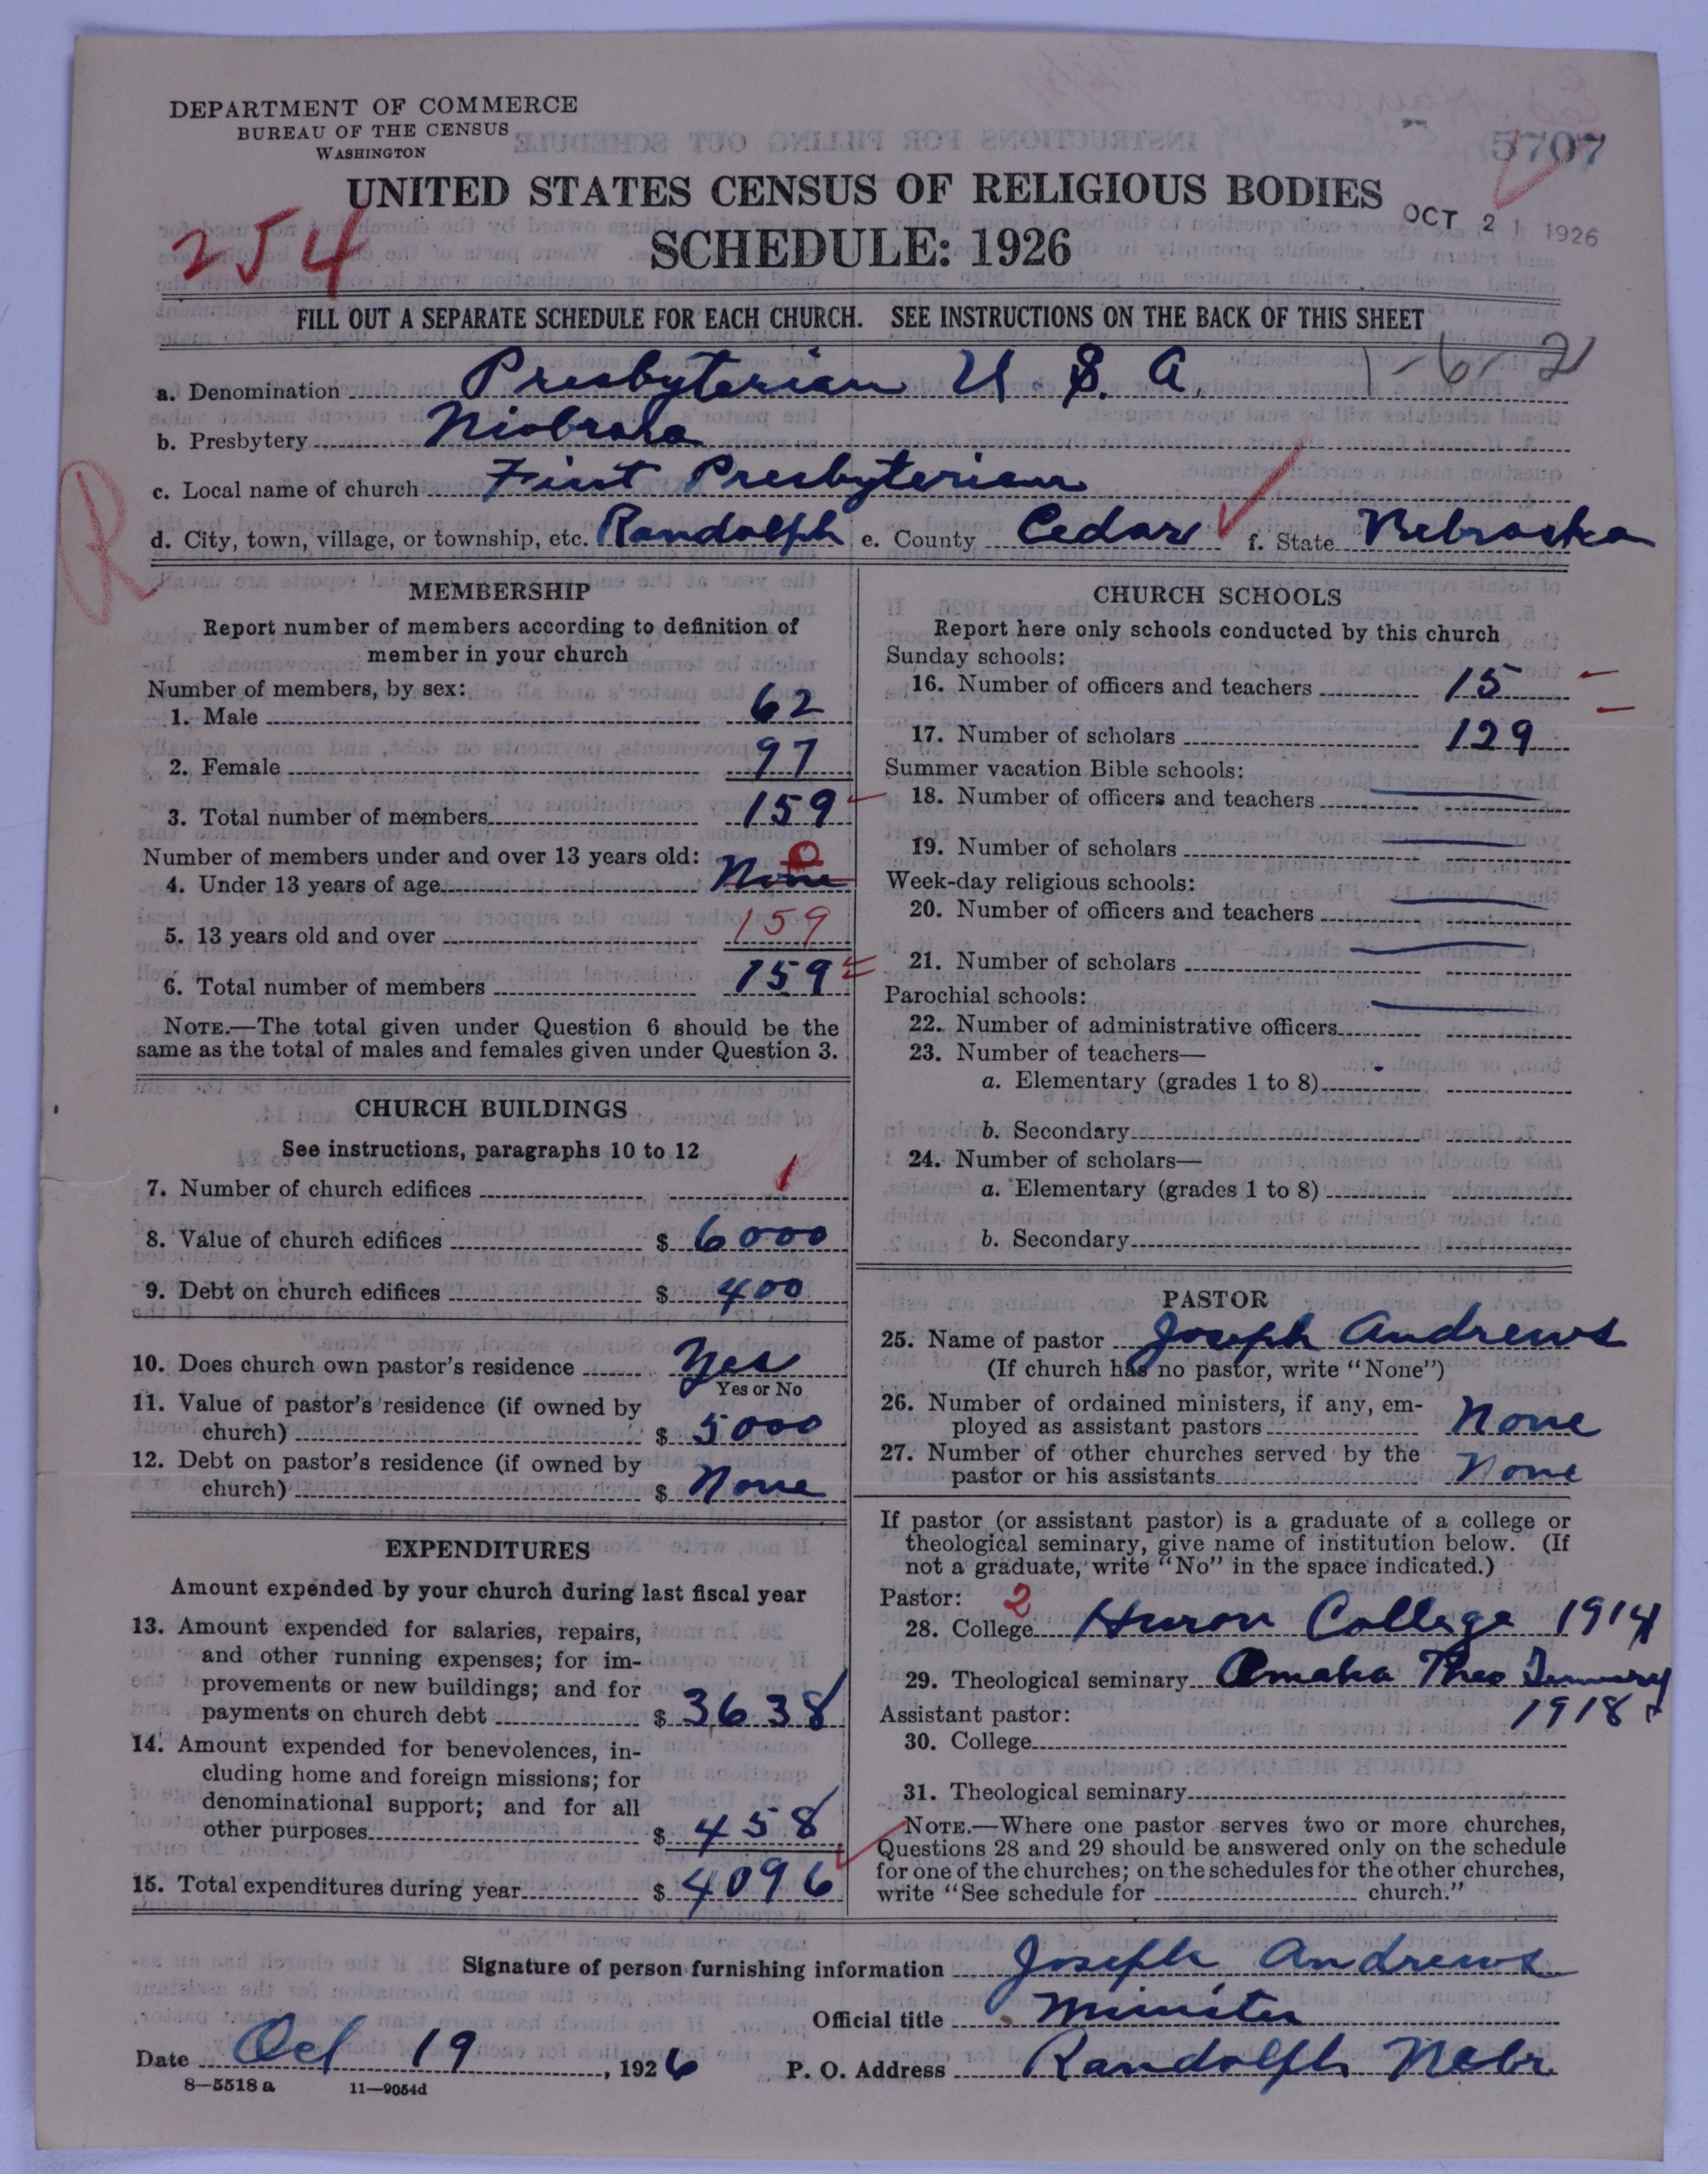 DEPARTMENT OF COMMERCE
BUREAU OF THE CENSUS
WASHINGTON
5707
UNITED STATES CENSUS OF RELIGIOUS BODIES
OCT 21 1926
254
SCHEDULE: 1926
FILL OUT A SEPARATE SCHEDULE FOR EACH CHURCH. SEE INSTRUCTIONS ON THE BACK OF THIS SHEET
1-6-21
a. Denomination Presbyterian U. S. A.
b. Presbytery Niobrara
R
c. Local name of church First Presbyterian
d. City, town, village, or township, etc. Randolph e. County Cedar f. State Nebraska
MEMBERSHIP
Report number of members according to definition of
member in your church
Number of members, by sex:
1. Male 62
2. Female 97
3. Total number of members 159
Number of members under and over 13 years old:
4. Under 13 years of age None 0
5. 13 years old and over 159
6. Total number of members 159
NOTE.—The total given under Question 6 should be the
same as the total of males and females given under Question 3.
CHURCH BUILDINGS
See instructions, paragraphs 10 to 12
7. Number of church edifices 1
8. Value of church edifices $ 6000
9. Debt on church edifices $ 400
10. Does church own pastor's residence Yes
Yes or No
11. Value of pastor's residence (if owned by
church) $ 5000
12. Debt on pastor's residence (if owned by
church) $ None
EXPENDITURES
Amount expended by your church during last fiscal year
13. Amount expended for salaries, repairs,
and other running expenses; for im-
provements or new buildings; and for
payments on church debt $ 3638
14. Amount expended for benevolences, in-
cluding home and foreign missions; for
denominational support; and for all
other purposes $ 458
15. Total expenditures during year $ 4096
CHURCH SCHOOLS
Report here only schools conducted by this church
Sunday schools:
16. Number of officers and teachers 15
17. Number of scholars 129
Summer vacation Bible schools:
18. Number of officers and teachers
19. Number of scholars
Week-day religious schools:
20. Number of officers and teachers
21. Number of scholars
Parochial schools:
22. Number of administrative officers
23. Number of teachers—
a. Elementary (grades 1 to 8)
b. Secondary
24. Number of scholars—
a. Elementary (grades 1 to 8)
b. Secondary
PASTOR
25. Name of pastor Joseph Andrews
(If church has no pastor, write "None")
26. Number of ordained ministers, if any, em-
ployed as assistant pastors None
27. Number of other churches served by the
pastor or his assistants None
If pastor (or assistant pastor) is a graduate of a college or
theological seminary, give name of institution below. (If
not a graduate, write "No" in the space indicated.)
Pastor: 2
28. College Huron College 1914
29. Theological seminary Omaha Theo Seminary
Assistant pastor: 1918
30. College
31. Theological seminary
NOTE.—Where one pastor serves two or more churches,
Questions 28 and 29 should be answered only on the schedule
for one of the churches; on the schedules for the other churches,
write "See schedule for church."
Signature of person furnishing information Joseph Andrews
Official title Minister
Date Oct 19, 1926 P. O. Address Randolph Nebr.
8—5518 a 11—9054d